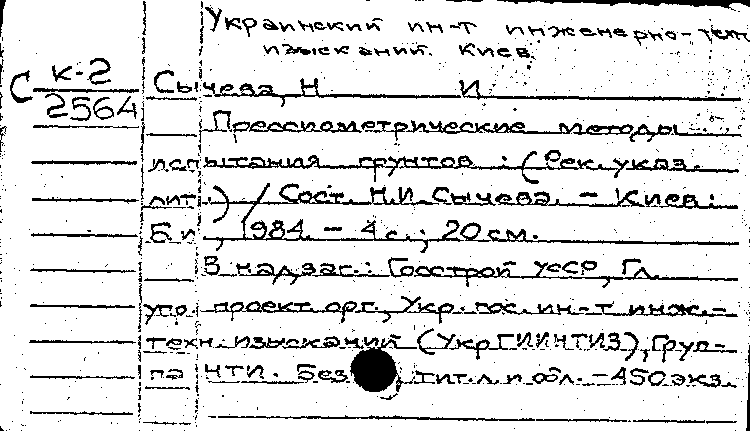 Украинский ин-т инженерно-техн
изысканий. Киев.
С к-2
2564
Сычева, Н И
Прессиометрические методы
испытания грунтов : (Рек. указ.
лит.) / Сост. Н.И. Сычева. - Киев :
Б.и, 1984. - 4 с. ; 20 см.
В надзаг.: Госстрой УССР, Гл.
упр. проект. орг., Укр. гос. ин-т инж.-
техн. изысканий (УкрГИИНТИЗ), Груп-
па НТИ. Без , тит. л. и обл. - 450 экз.